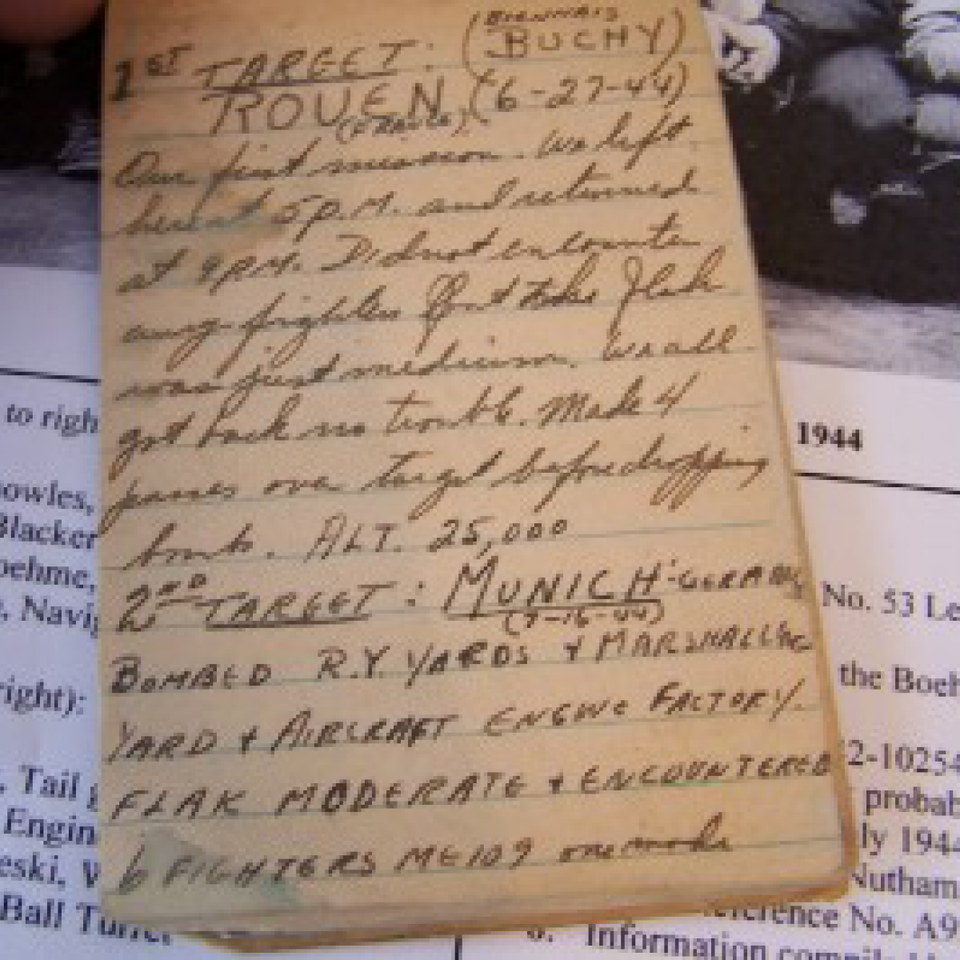 (BIENNAIS
1ST TARGET: BUCHY)
ROUEN (6-27-44)
(FRANCE)
Our first mission. We left
here at 5 P.M. and returned
at 9 P.M. Did not encounter
any fighters but the flak
was just medium. We all
got back no trouble. Made 4
passes over target before dropping
bombs. ALT. 25,000
2ND TARGET: MUNICH-GERMANY
(7-16-44)
BOMBED R.Y. YARDS + MARSHALLING
YARD + AIRCRAFT ENGINE FACTORY.
FLAK MODERATE + ENCOUNTERED
6 FIGHTERS ME109 one made
to righ
owles,
Blacker
oehme,
, Navig
right):
, Tail g
Engin
eski, W
Ball Turret
1944
No. 53 Le
the Boeh
2-10254
probab
ly 1944
Nutham
eference No. A9
Information compiled